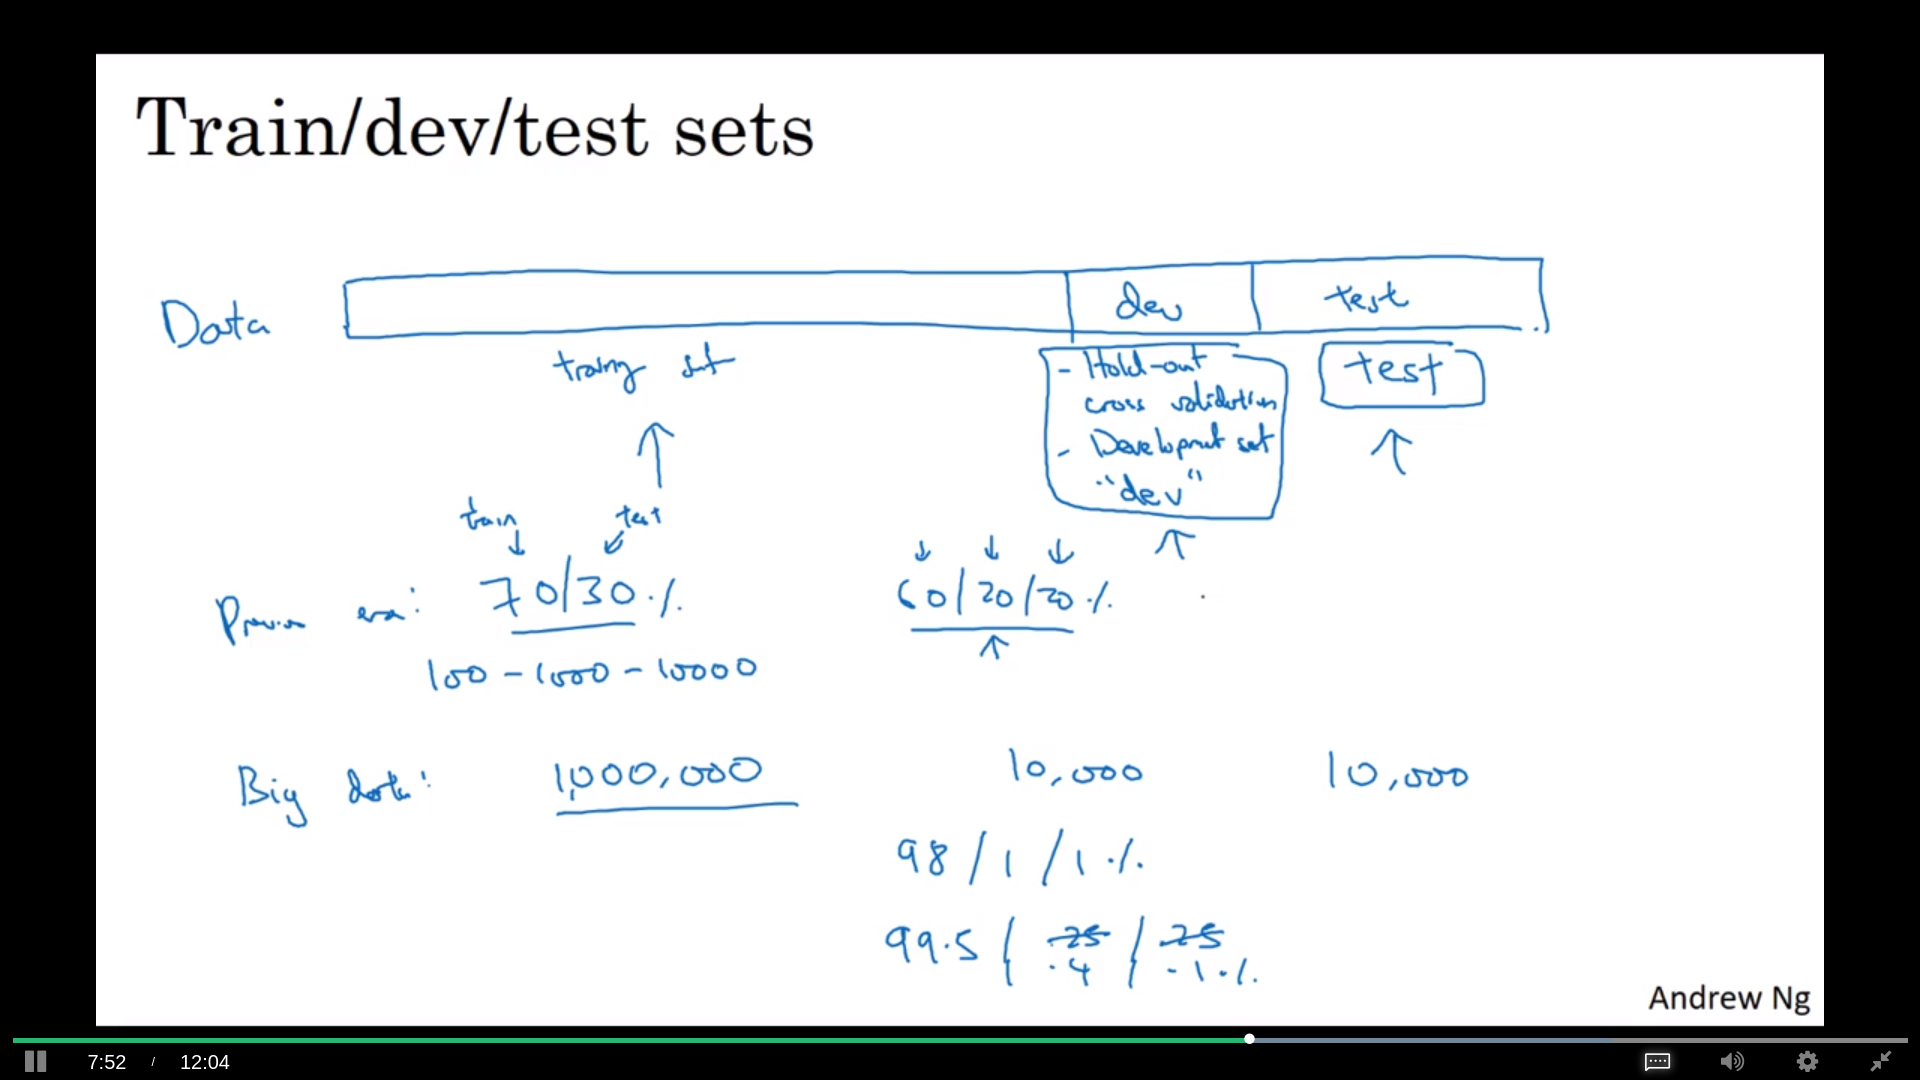 Train/dev/test sets
Data
dev
test
training set
- Hold-out
cross validation
- Development set
"dev"
test
train
test
Previous era:
70/30%
60/20/20%
100 - 1000 - 10000
Big data:
1,000,000
10,000
10,000
98/1/1%
99.5/.25/.25
.4 .1%
Andrew Ng
7:52 / 12:04